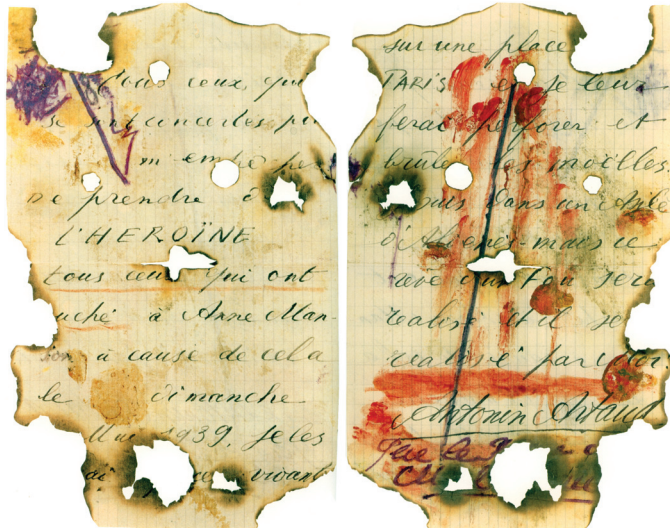 Tous ceux qui
se sont concertés pr
m'empêcher
de prendre
L'HEROÏNE
tous ceux qui ont
uché à Anne Man-
son à cause de cela
le dimanche
Mai 1939, je les
ai vivant
sur une place
PARIS et je leur
ferai perforer et
brûler les moëlles.
suis dans un Asile
d'Aliénés mais ce
rêve d'un Fou sera
réalisé et il sera
réalisé par moi.
Antonin Artaud